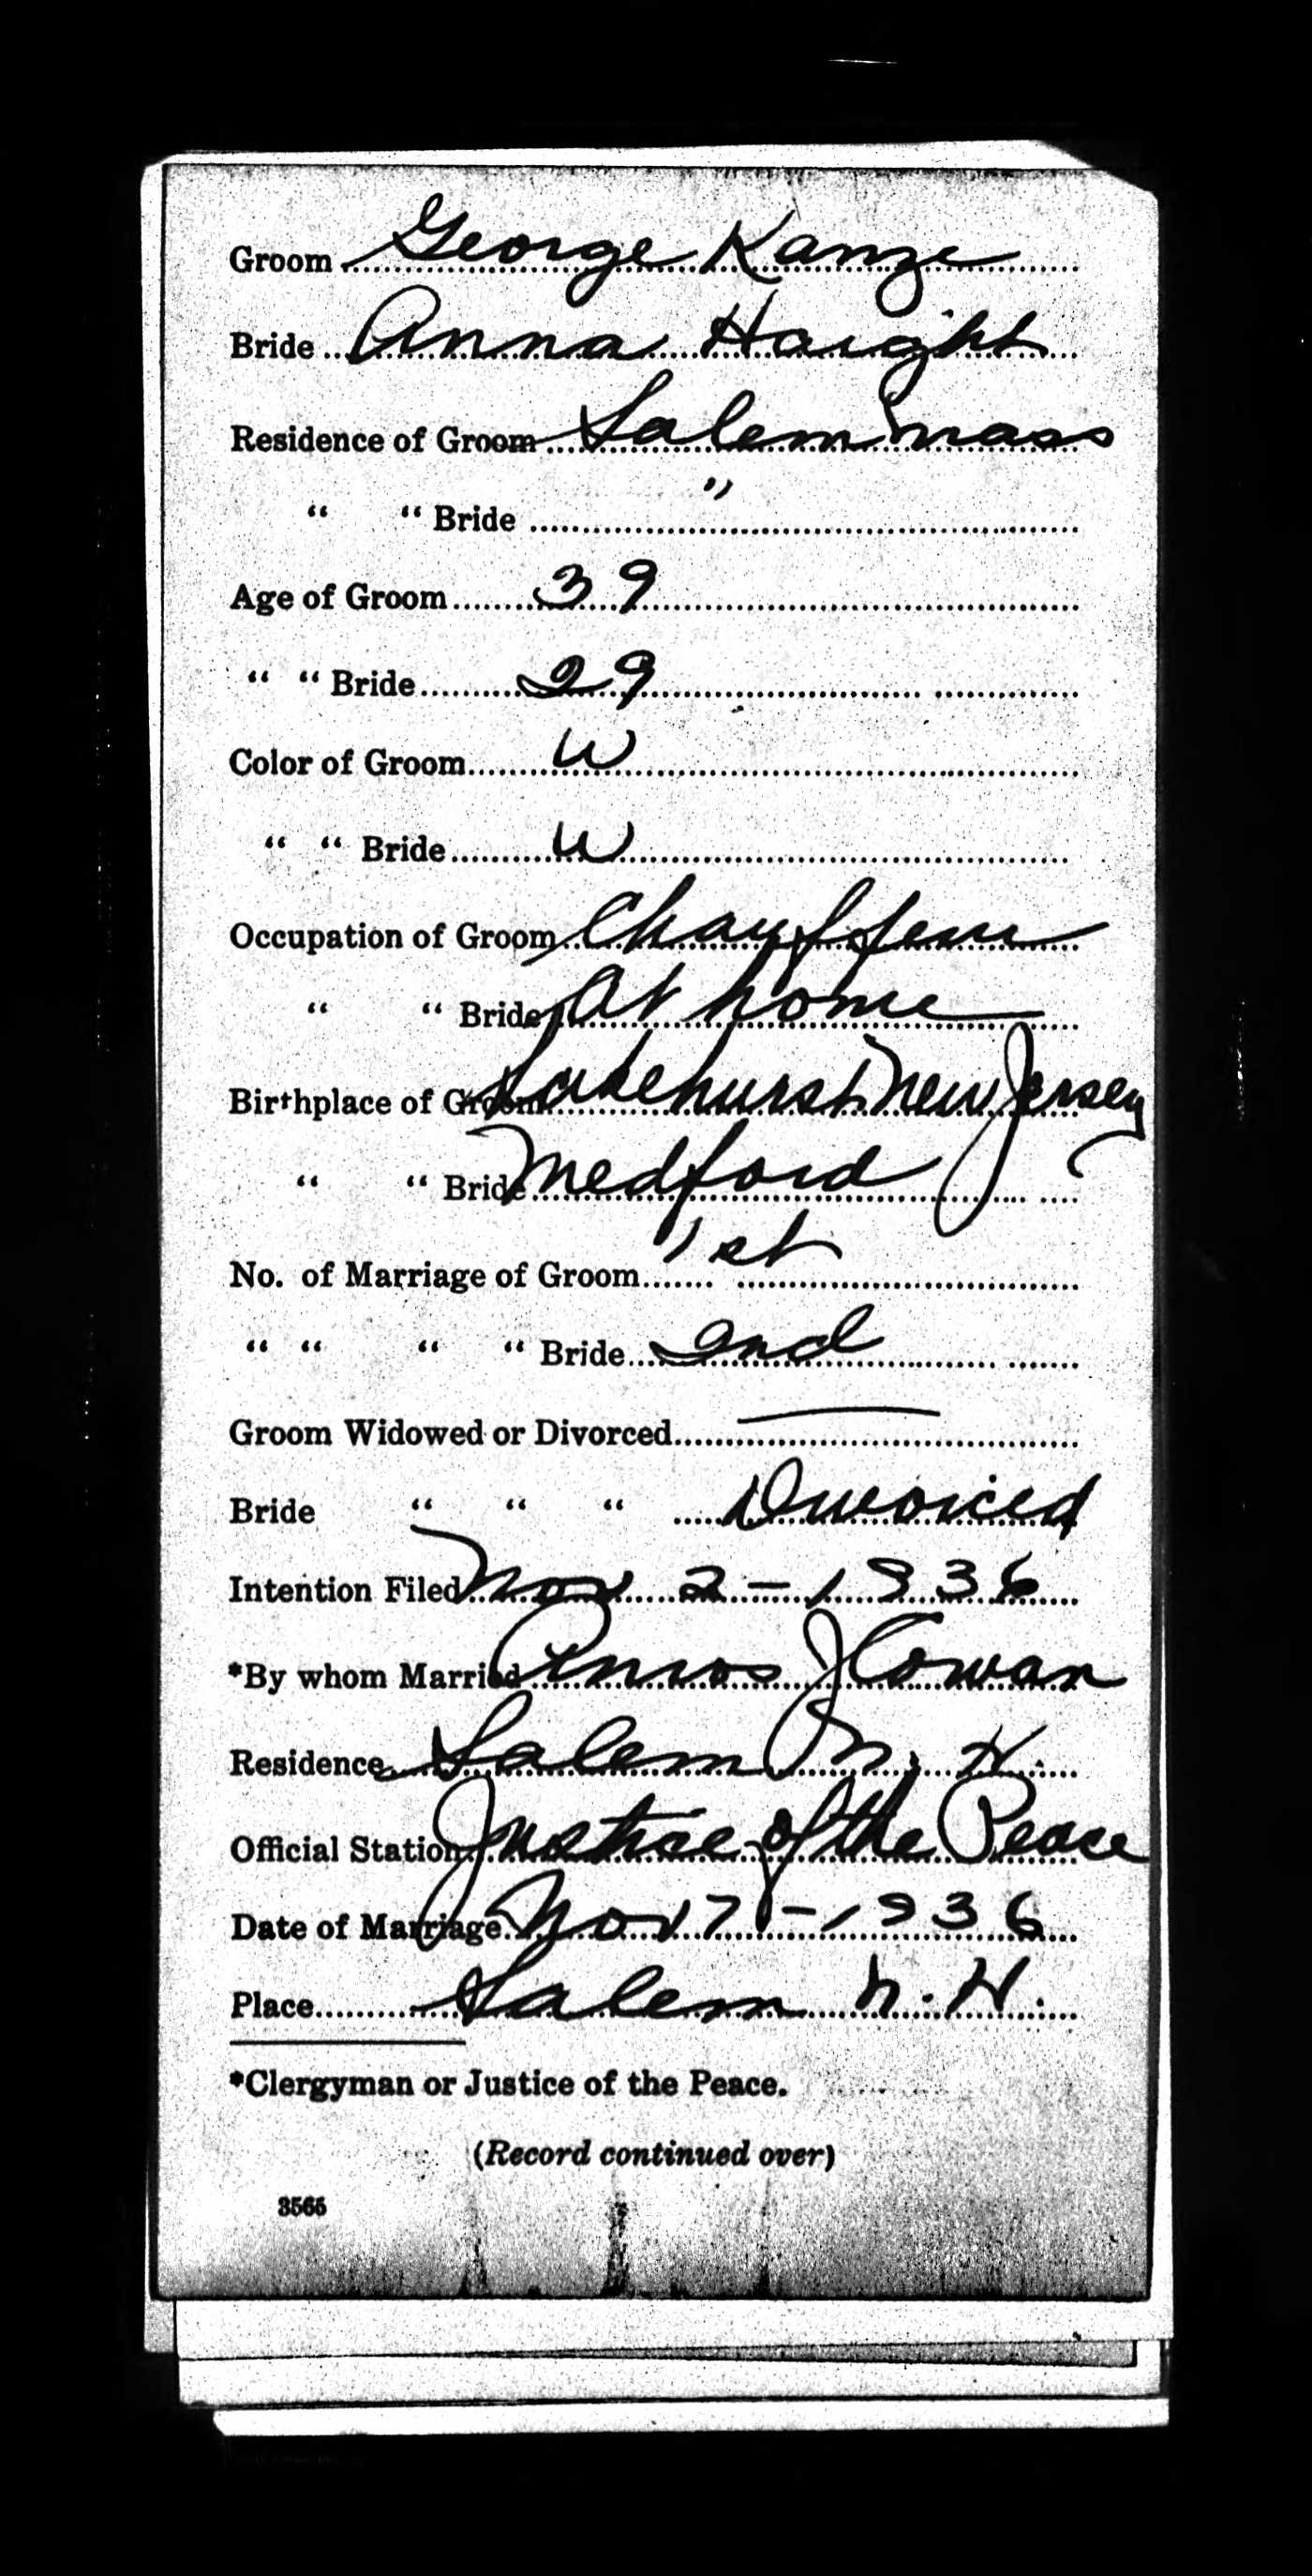 Groom George Kanze
Bride Anna Haight
Residence of Groom Salem Mass
" " Bride "
Age of Groom 39
" " Bride 29
Color of Groom W
" " Bride W
Occupation of Groom Chauffeur
" " Bride At home
Birthplace of Groom Lakehurst New Jersey
" " Bride Medford
No. of Marriage of Groom 1st
" " " " Bride 2nd
Groom Widowed or Divorced —
Bride " " " Divorced
Intention Filed Nov 2-1936
*By whom Married Amos J Cowan
Residence Salem N. H.
Official Station Justice of the Peace
Date of Marriage Nov 7-1936
Place Salem N. H.
*Clergyman or Justice of the Peace.
(Record continued over)
3565